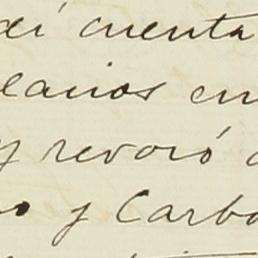 di cuenta
lacios en
y revocó
o y Carbo